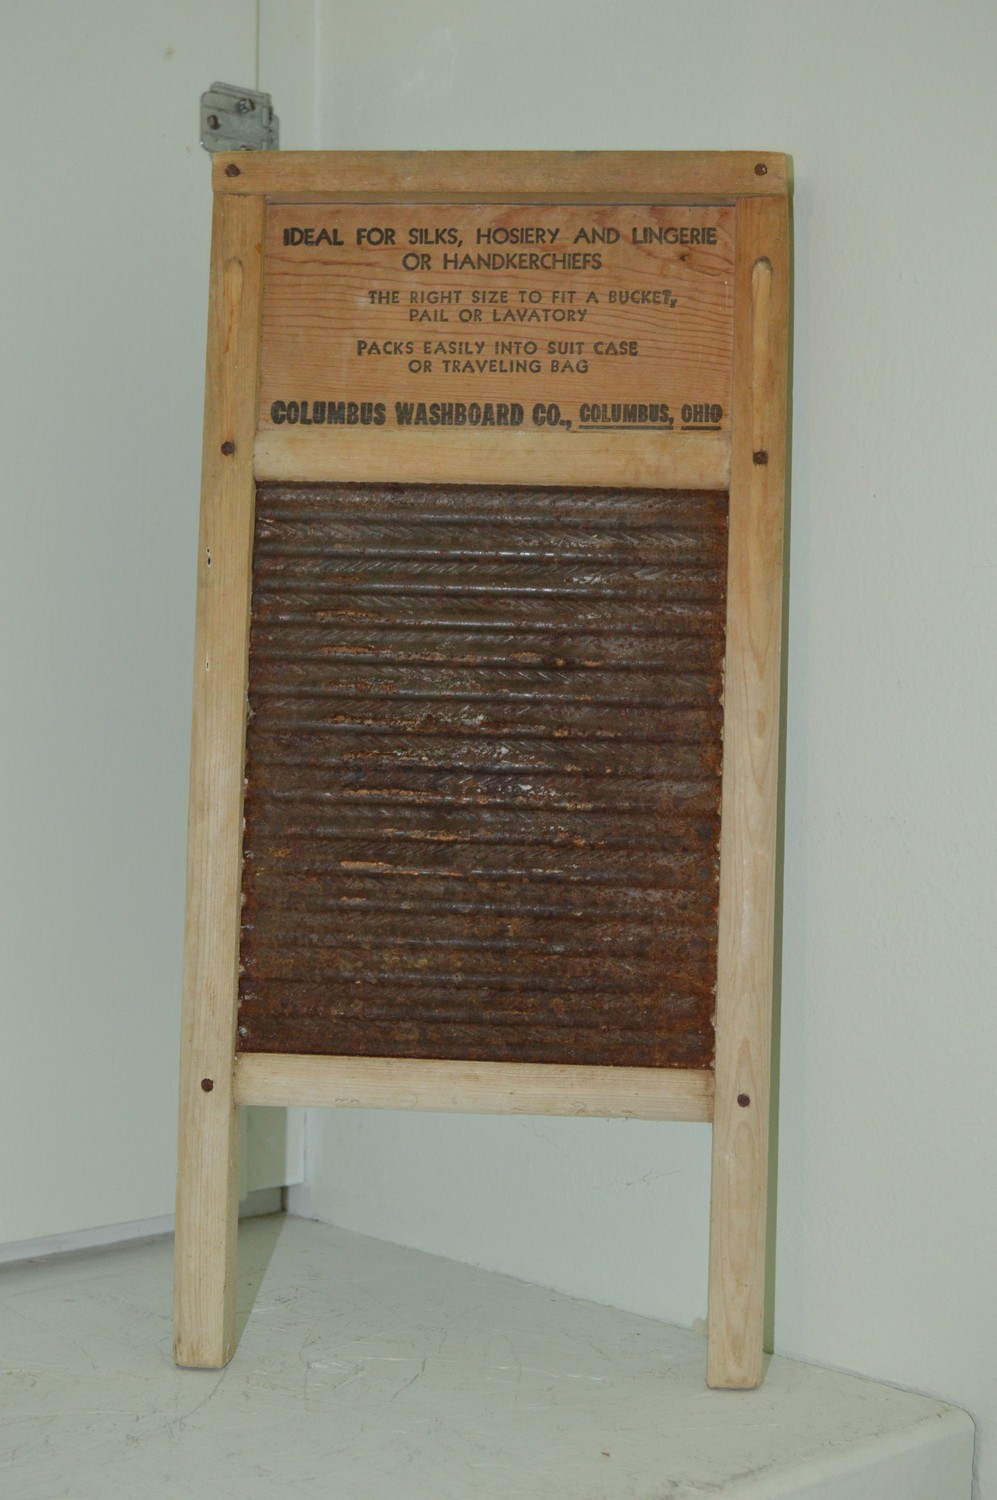 IDEAL FOR SILKS, HOSIERY AND LINGERIE
OR HANDKERCHIEFS
THE RIGHT SIZE TO FIT A BUCKET,
PAIL OR LAVATORY
PACKS EASILY INTO SUIT CASE
OR TRAVELING BAG
COLUMBUS WASHBOARD CO., COLUMBUS, OHIO